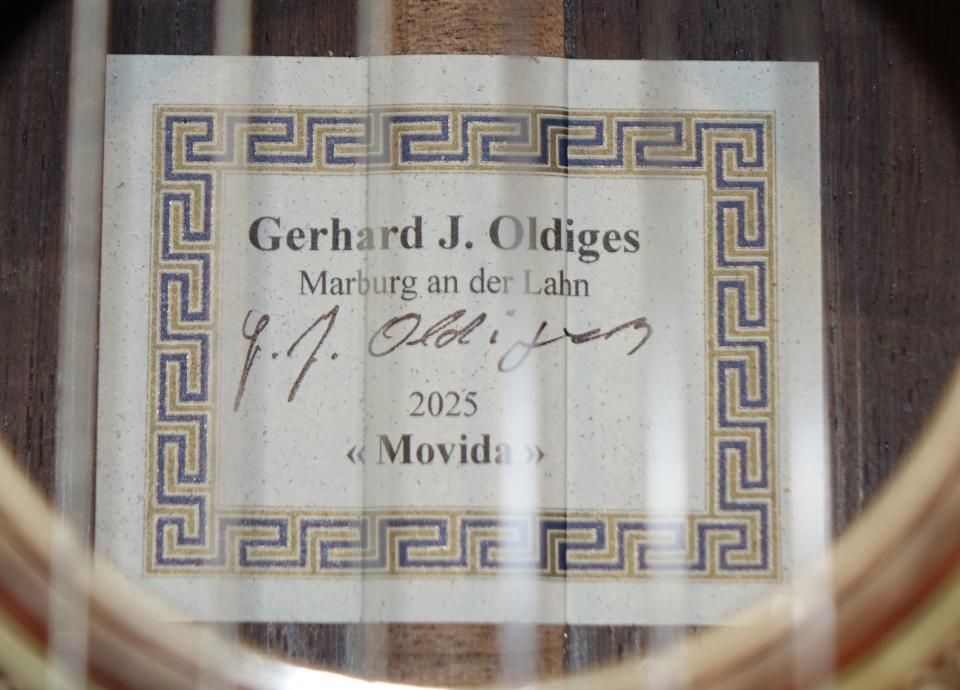 Gerhard J. Oldiges
Marburg an der Lahn
G. J. Oldiges
2025
« Movida »